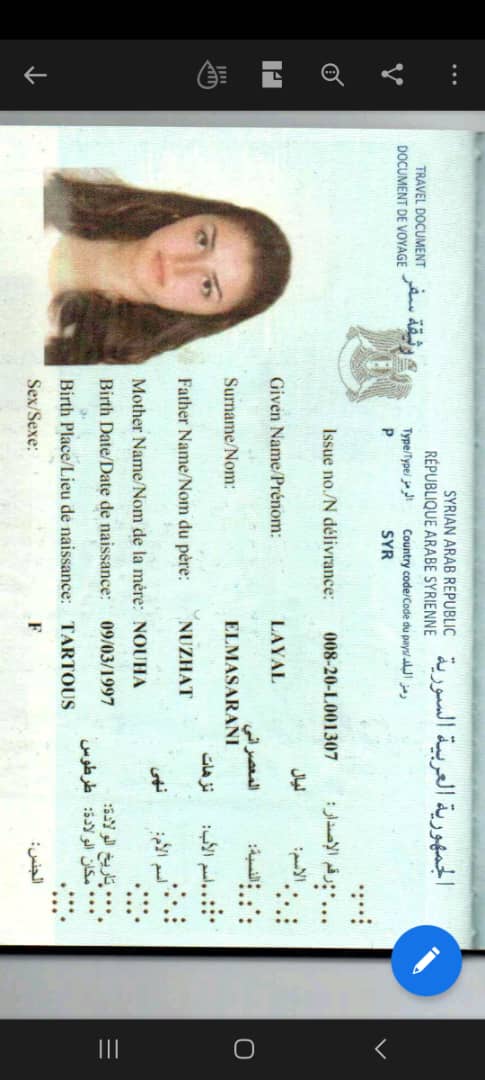 SYRIAN ARAB REPUBLIC الجمهورية العربية السورية
RÉPUBLIQUE ARABE SYRIENNE
TRAVEL DOCUMENT
DOCUMENT DE VOYAGE وثيقة سفر
Type/Type/ الرمز Country code/Code du pays/ رمز البلد
P SYR
Issue no./N délivrance: 008-20-L001307 رقم الإصدار:
Given Name/Prénom: LAYAL ليال الاسم:
Surname/Nom: ELMASARANI المعصراني النسبة:
Father Name/Nom du père: NUZHAT نزهات اسم الأب:
Mother Name/Nom de la mère: NOUHA نهى اسم الأم:
Birth Date/Date de naissance: 09/03/1997 تاريخ الولادة:
Birth Place/Lieu de naissance: TARTOUS طرطوس مكان الولادة:
Sex/Sexe: F الجنس: